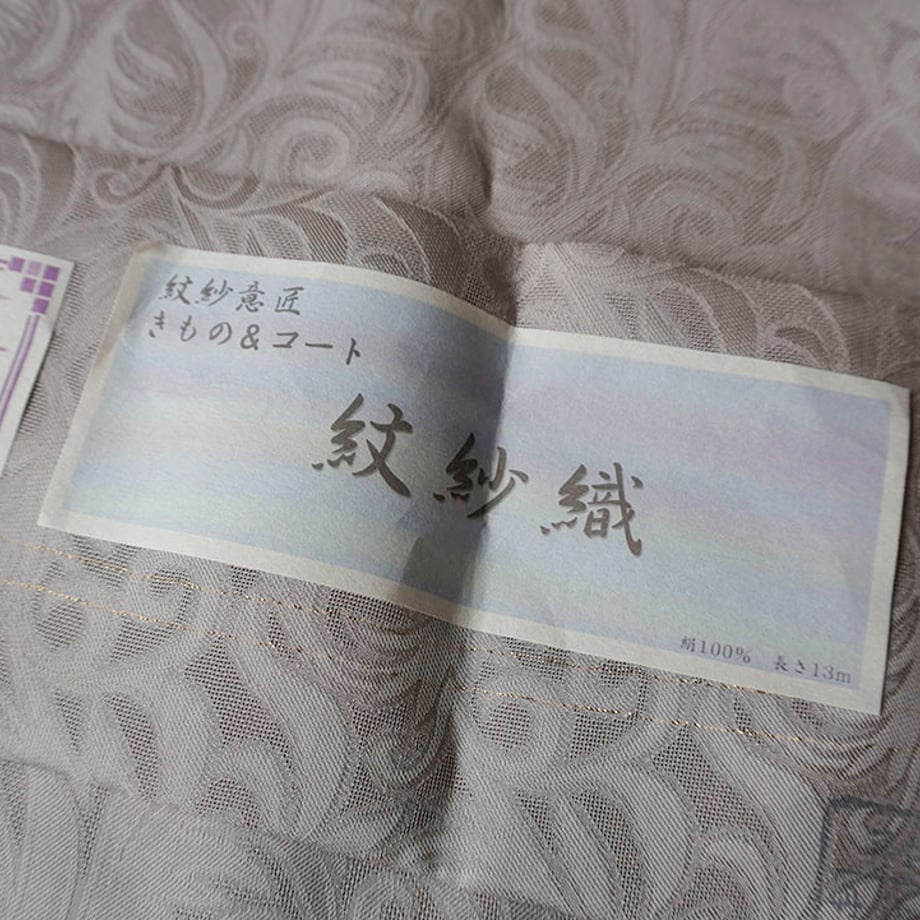 紋紗意匠
きもの＆コート
紋紗織
絹100%　長さ13m